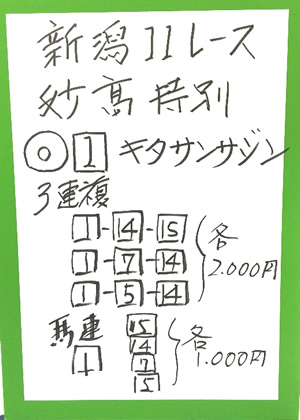 新潟11レース
妙高特別
◎1 キタサンサジン
3連複
1-14-15
1-7-14
1-5-14
各2.000円
馬連
1
15
14
7
5
各1.000円